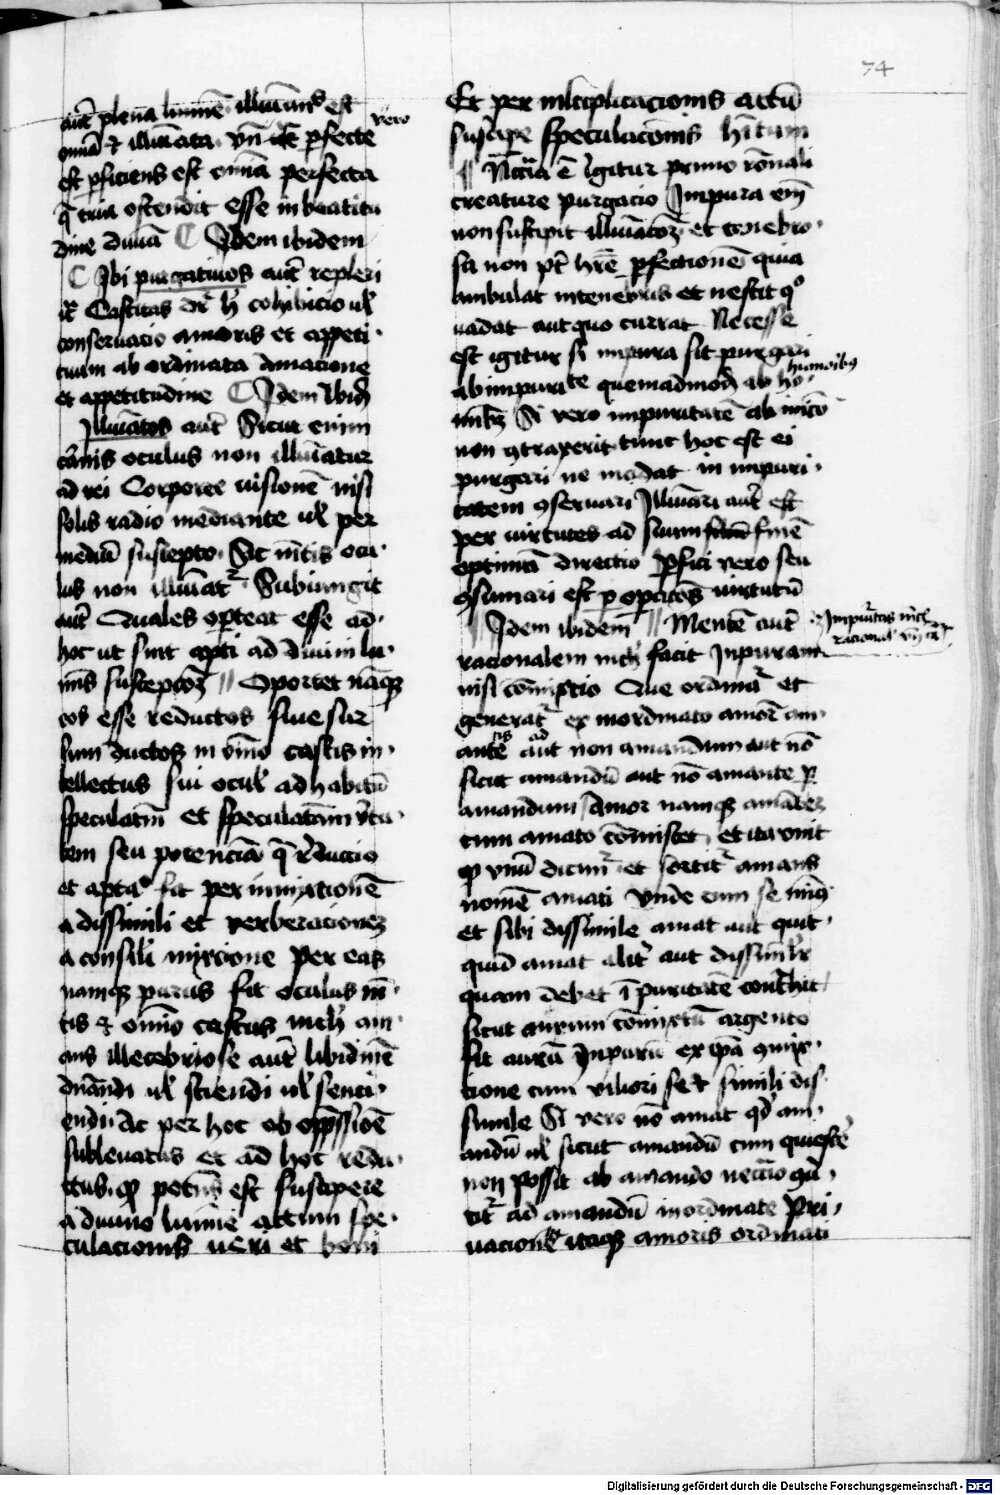 74
aut̄ plena lumīe illuminās est
omīa et illuīata vn̄ vero pfecte
est pficiens est omīa perfecta
q̄ tria ostendit esse in beatitu
dine diuīa Idem ibidem
Ibi purgatiuos aut̄ repleri
Castitas dr̄ hic cohibicio ul̕
conseruacio amoris et appeti
tuum ab ordinata amacione
et appetitudine Idem Ibid̄
Illuīatos aut̄ Sicut enim
carnis oculus non illuīatur
ad rei Corporee uisionē nisi
solis radio mediante ul̕ per
mediū suscepto Sic mētis ocu
lus non illuīatr̄ Subiungit
aut̄ Quales oporteat esse ad
hoc ut sint apti ad diuini lu
mīs susceptoꝫ Oportet nāqꝫ
eos esse reductos siue sur
sum ductos in oīno castis in
tellectus sui ocul̕ ad habitū
speculatiū et speculatiuā vtu
tem seu potenciā q̄ reductio
et apta fit per inmixtionē
a dissimili et verberacionez
a consili mixcione per eas
namqꝫ purus fit oculus mē
tis et omīo castus mchi am
ans illecebriose aut̄ libidinē
dn̄andi ul̕ sciendi ul̕ senci
endi Ac per hoc ab opp̄ssiōe
subleuatus et ad hoc redu
ctus qꝫ potens est suscipere
a diuino lumīe actum spe
culacionis ueri et boni
Et per multiplicacionis actū
suscipe speculacionis hītum
Necc̄ia ē igitur primo rōnali
creature purgacio Impura em̄
non suscipit illuīacōꝫ et tenebro
sa non pt̄ hr̄e pfectionē quia
ambulat in tenebris et nescit qo
uadat aut quo currat Necesse
est igitur si impura sit purgari
ab impuritate quemadmodū ab ho
humoribus
Si vero impuritatē ab inicō
non ɔtraxerit tunc hoc est ei
purgari ne inadat in impuri
tatem ɔseruari Illuīari aut̄ est
per uirtutes ad suum finē
optimū directio Pfici vero seu
ɔsumari est p opacōꝫ uirtutū
Idem ibidem Mentē aut̄
Impuritas mētꝫ
racional
racionalem mchi facit Inpuram
nisi cōmixtio Que ordinat̄ et
generat̄ ex inordinato amore am
antꝫ aut non amandum aut nō
sicut amandū aut nō amante p
amandum Amor namqꝫ amātē
cum amato cōmiscet et ita vnit
qꝫ vnū dicunt̄ et sortit̄ amans
nomē amati Vnde cum se miꝫ
et sibi dissimile amat aut quit
quid amat alit̄ aut dissimilit̄
quam debet īpuritatē cont̄hit
sicut aurum cōmixtū argento
fit aurū Inpurū ex ip̄a ɔmix
tione cum viliori se et simili dis
simile Si vero nō amat qd̄ am
andū ul̕ sicut amandū cum quiescē
non possit ab amando necc̄io qū
tit̄ ad amandū inordinate Pri
uacionē itaqꝫ amoris ordinati
Digitalisierung gefördert durch die Deutsche Forschungsgemeinschaft - DFG